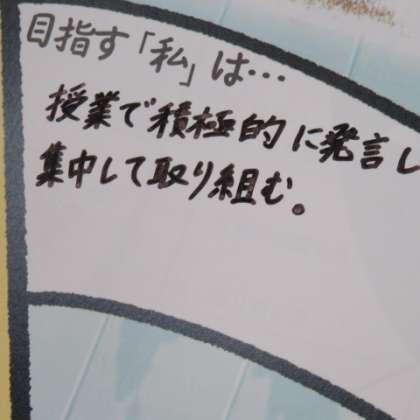 目指す「私」は…
授業で積極的に発言し
集中して取り組む。